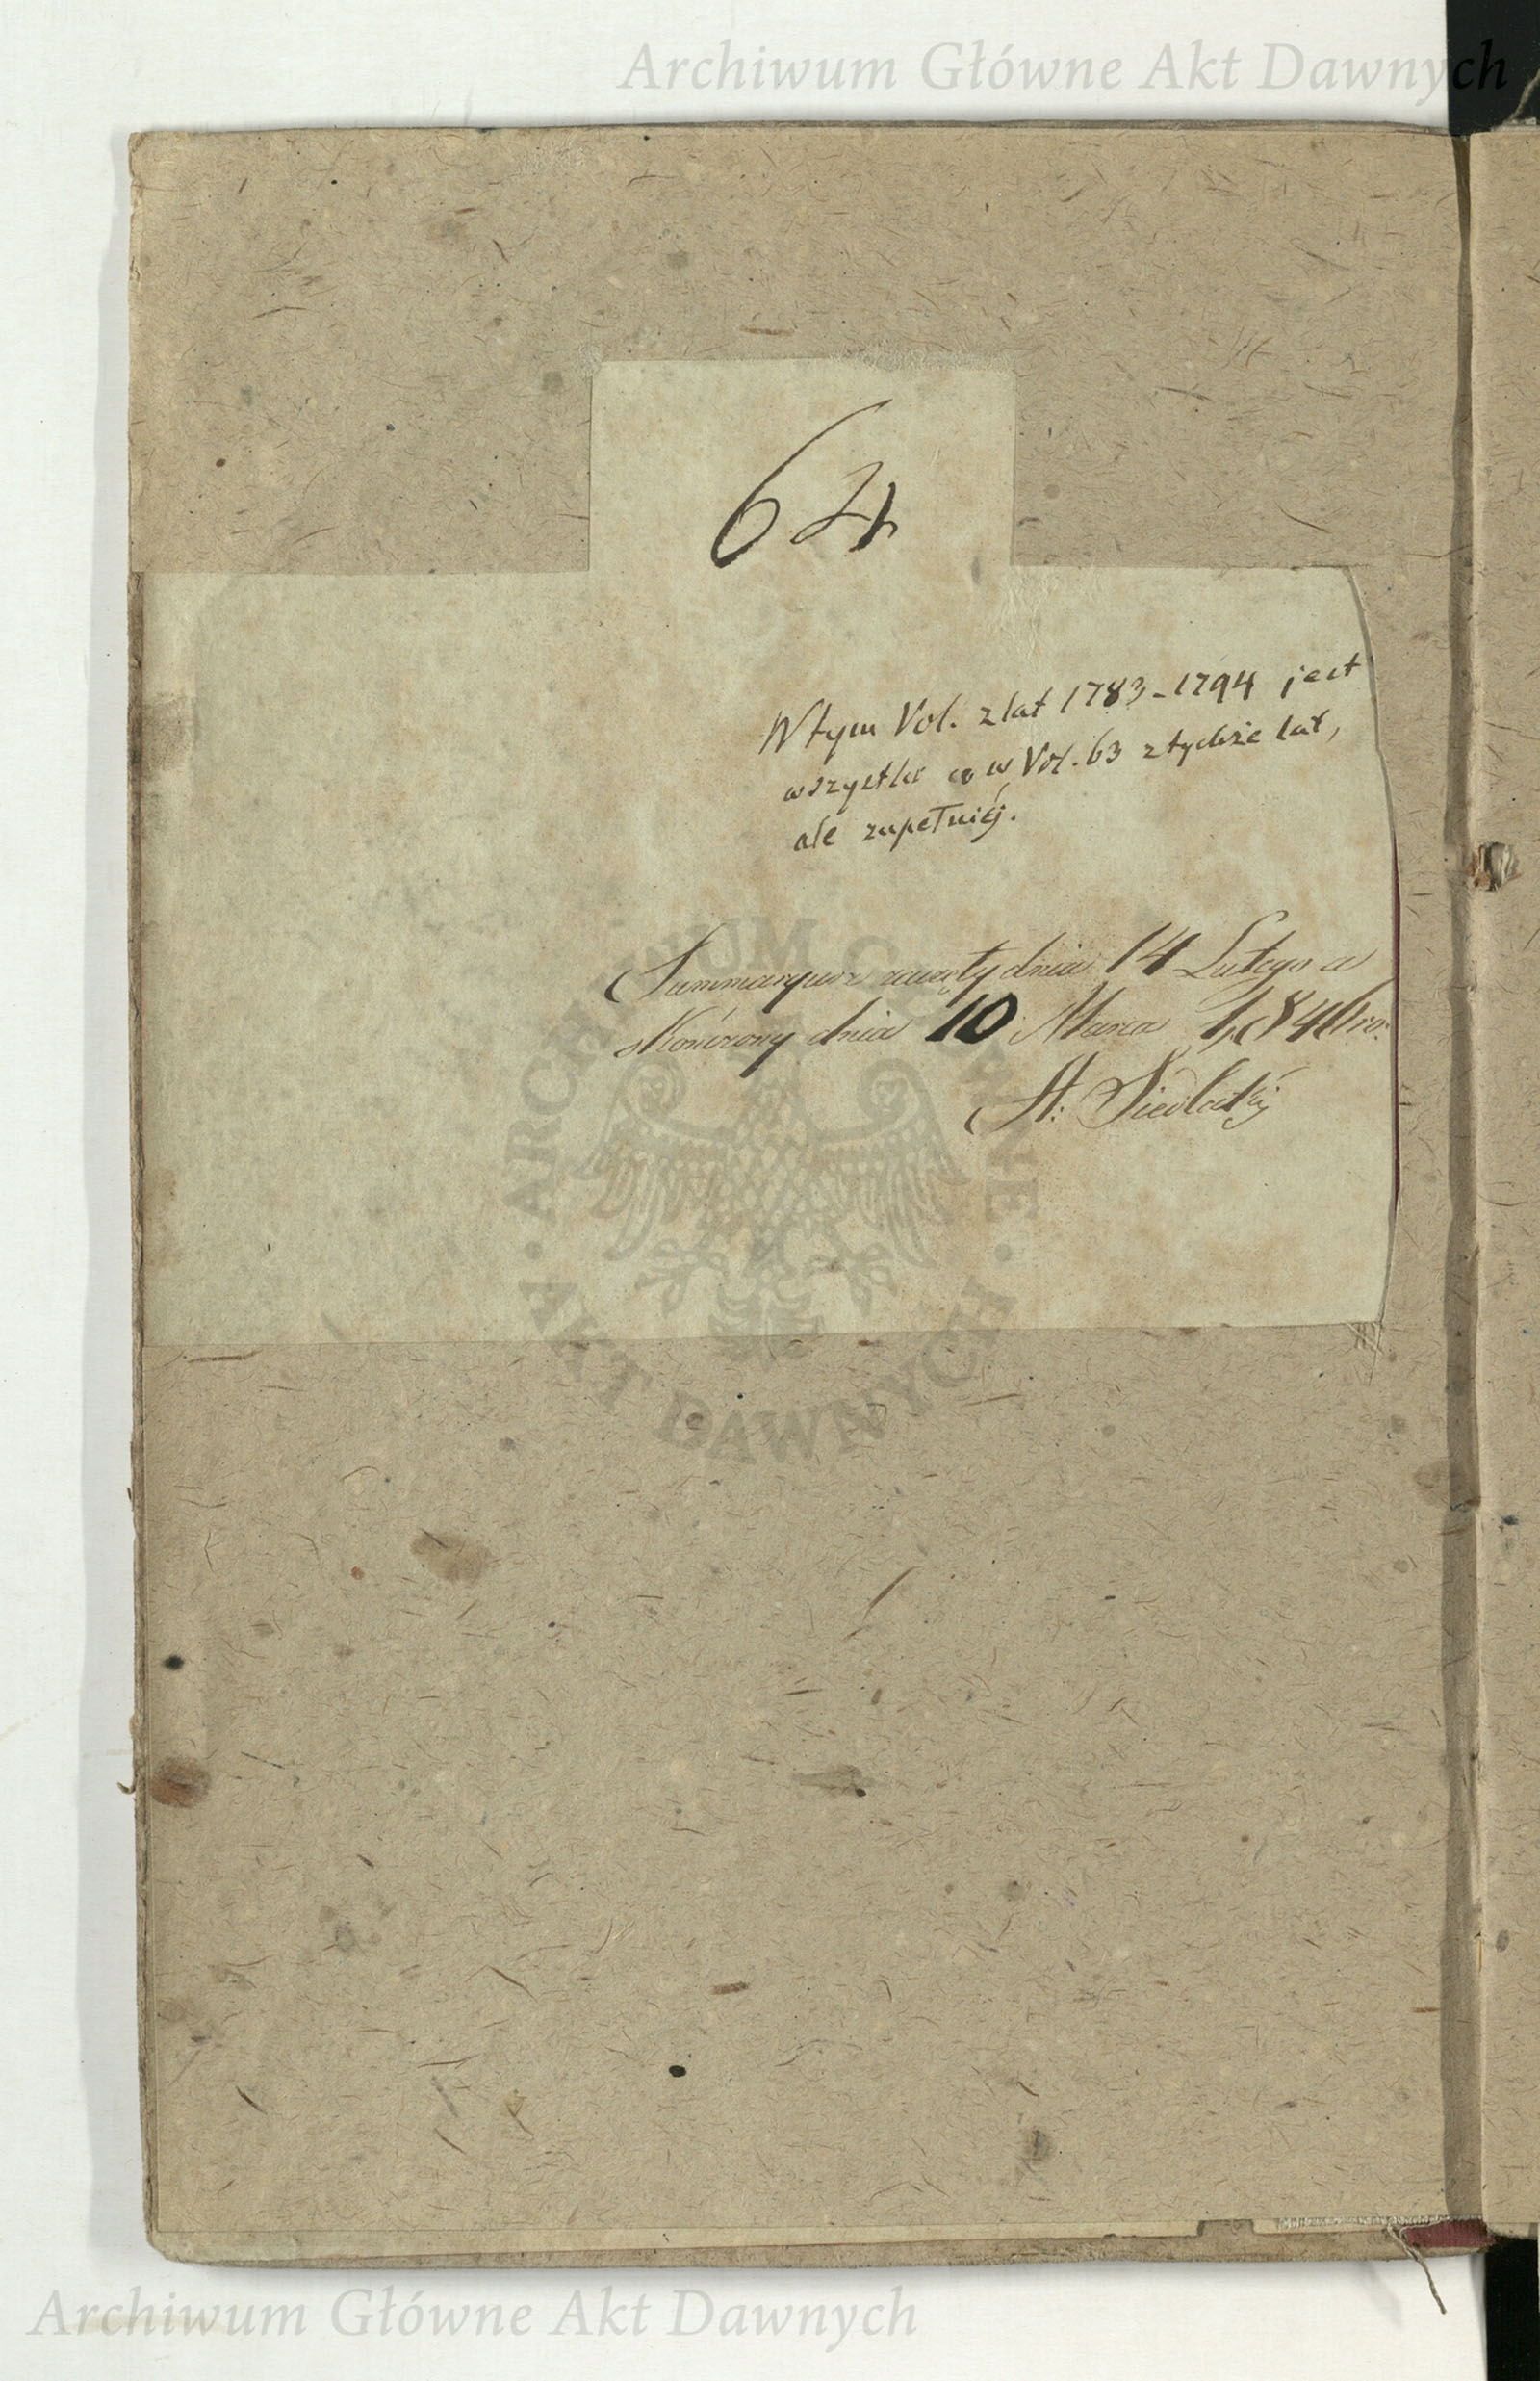 Archiwum Główne Akt Dawnych
64
W tym Vol. z lat 1783-1794 jest
wszystko co w Vol. 63 z tychże lat,
ale zupełniéj.
Summaryusz zaczęty dnia 14 Lutego a
skończony dnia 10 Marca 1,846 ro:
A: Siedlecki
ARCHIWUM GŁÓWNE
AKT DAWNYCH
Archiwum Główne Akt Dawnych